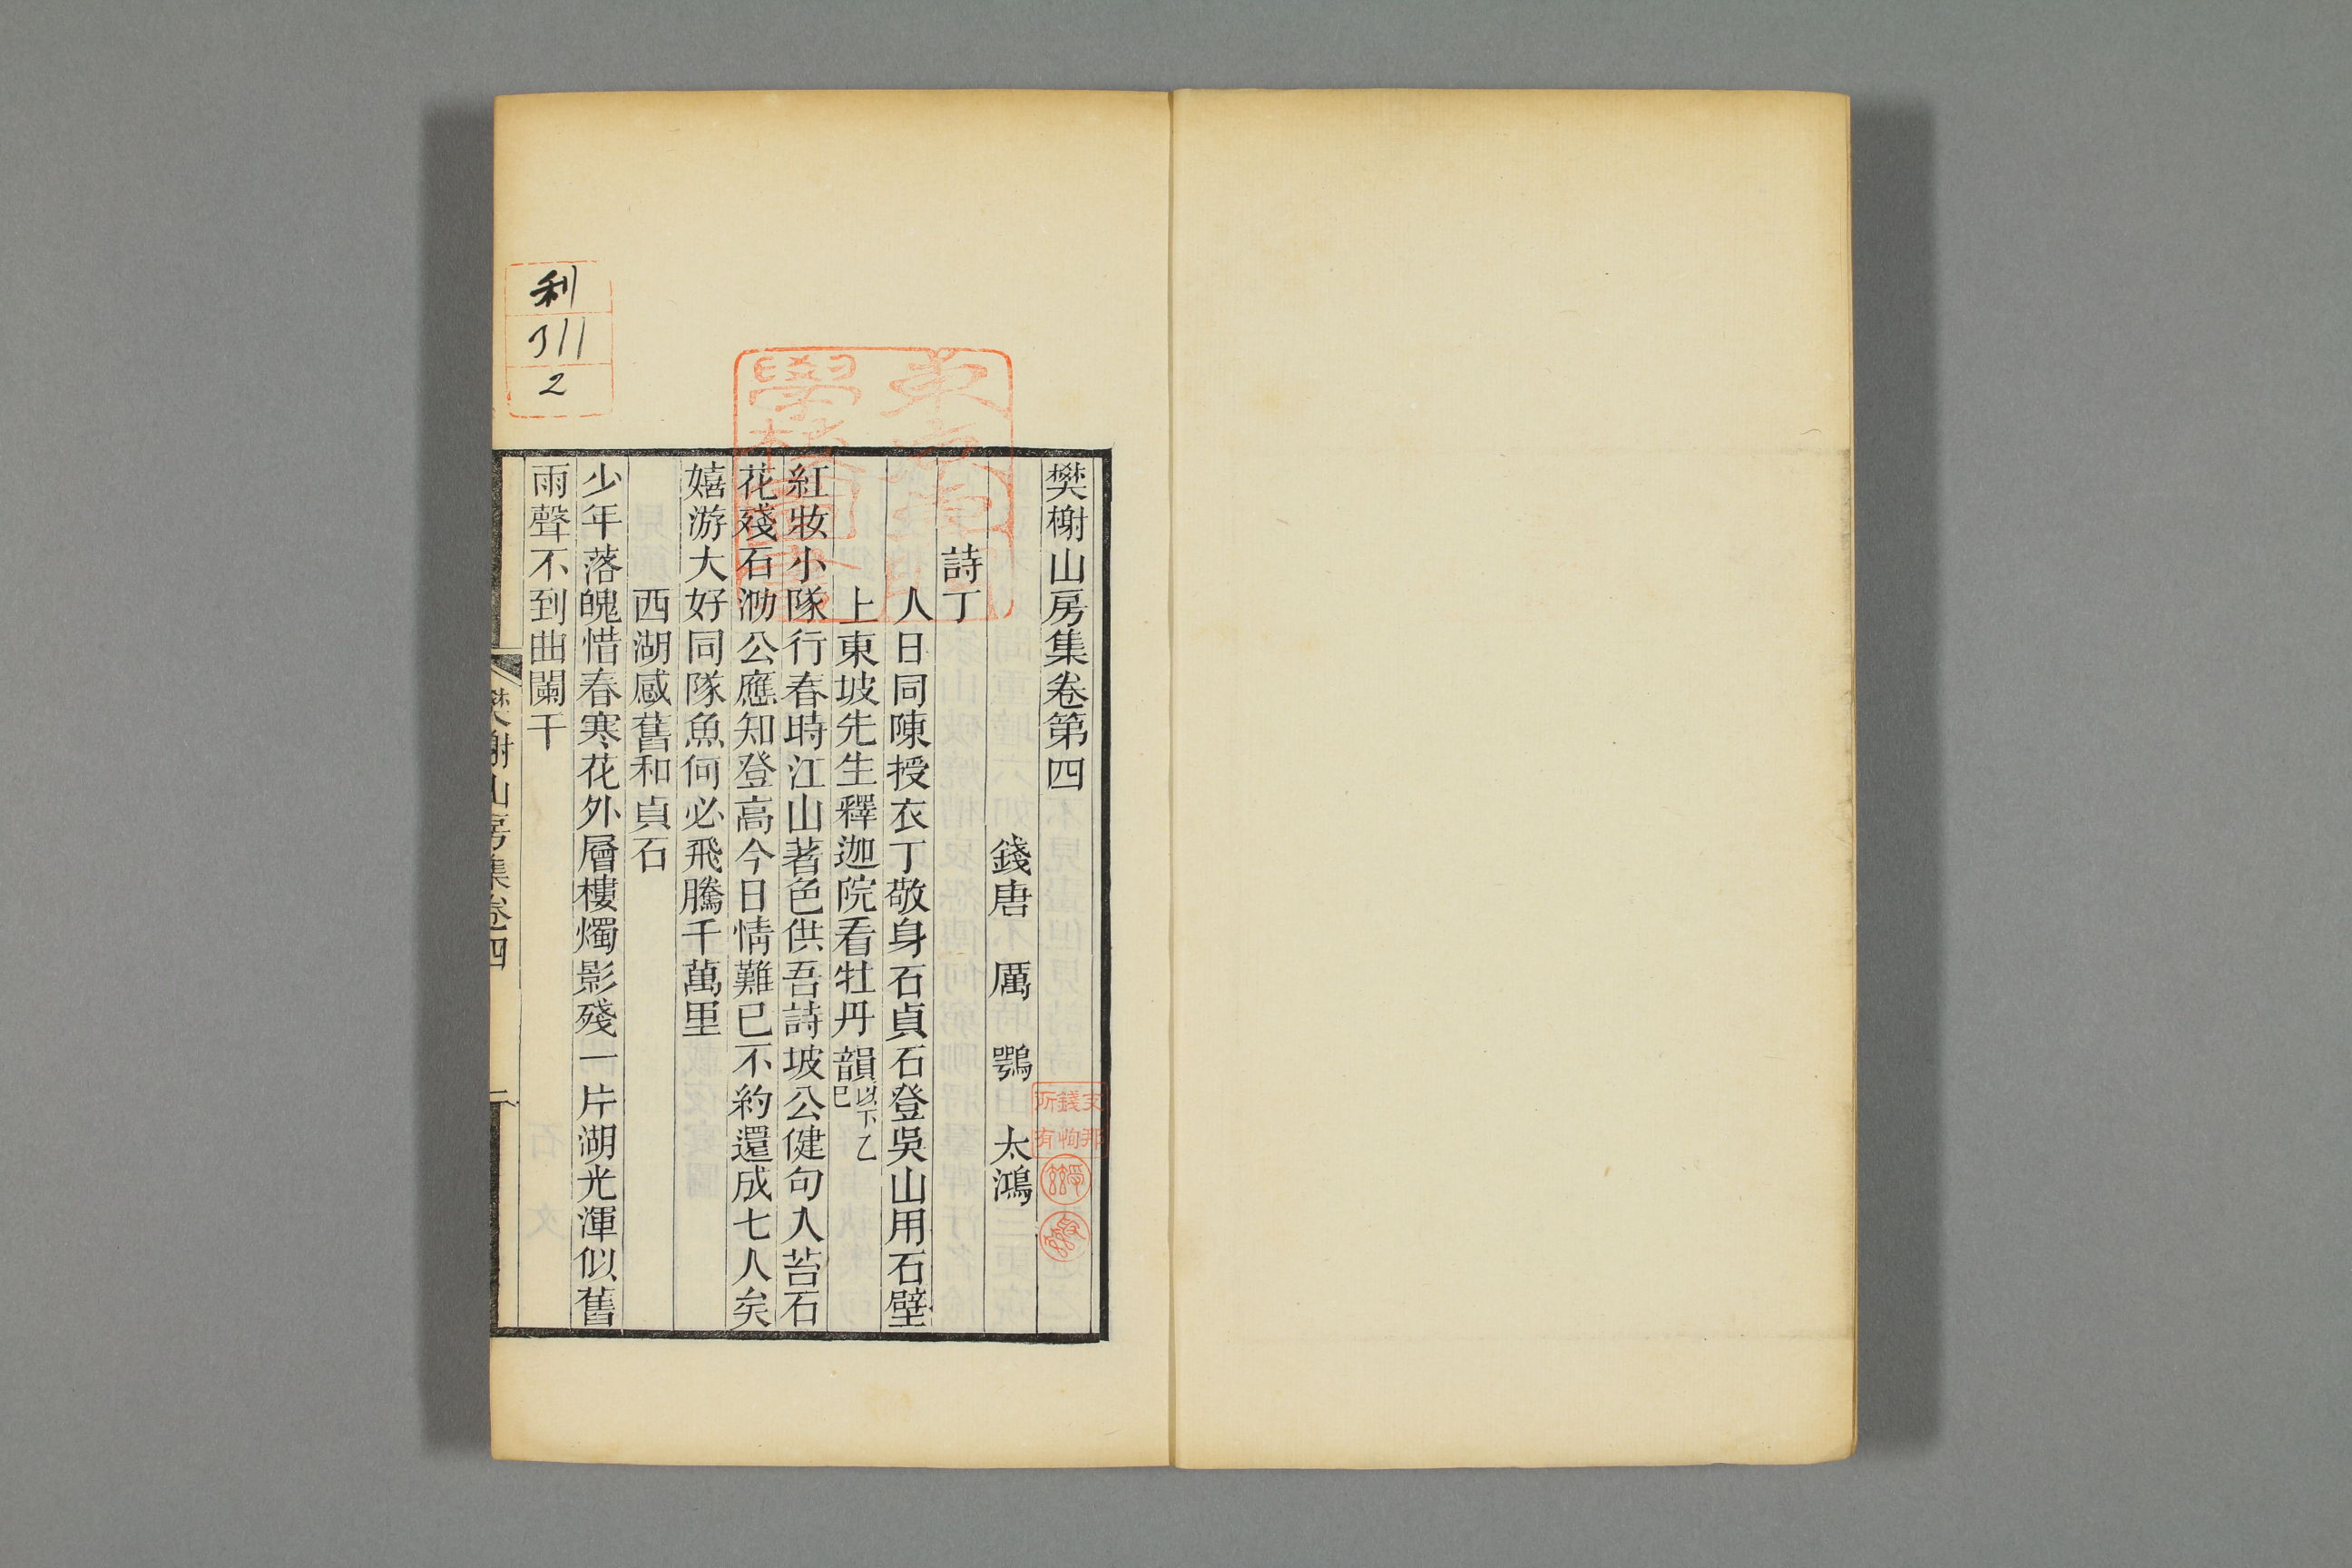 樊榭山房集卷第四
錢唐 厲 鶚 太鴻
詩丁
人日同陳授衣丁敬身石貞石登吳山用石壁
上東坡先生釋迦院看牡丹韻以下乙巳
紅妝小隊行春時江山著色供吾詩坡公健句入苔石
花殘石泐公應知登高今日情難已不約還成七人矣
嬉游大好同隊魚何必飛騰千萬里
西湖感舊和貞石
少年落魄惜春寒花外層樓燭影殘一片湖光渾似舊
雨聲不到曲闌干
樊榭山房集卷四
一
利
311
2
文錢所
那恂有